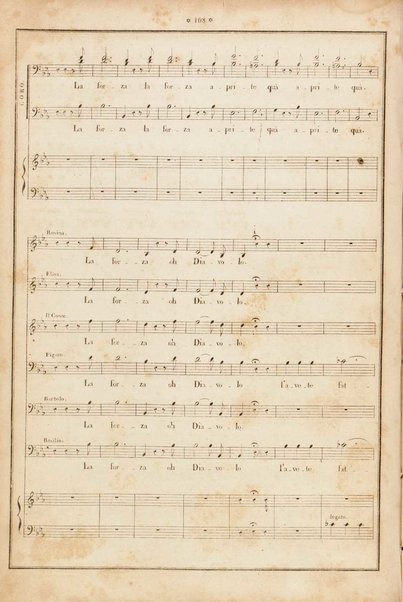 108
CORO
La for_za la for_za a_pri_te quà a_pri_te quà.
La for_za la for_za a_pri_te quà a_pri_te quà.
Rosina.
La for_za oh Dia_vo_lo.
La for_za oh Dia_vo_lo.
Il Conte.
La for_za oh Dia_vo_lo.
Figaro.
La for_za oh Dia_vo_lo l'a_ve_te fat_
Bartolo.
La for_za oh Dia_vo_lo.
Basilio.
La for_za oh Dia_vo_lo l'a_ve_te fat_
legato.